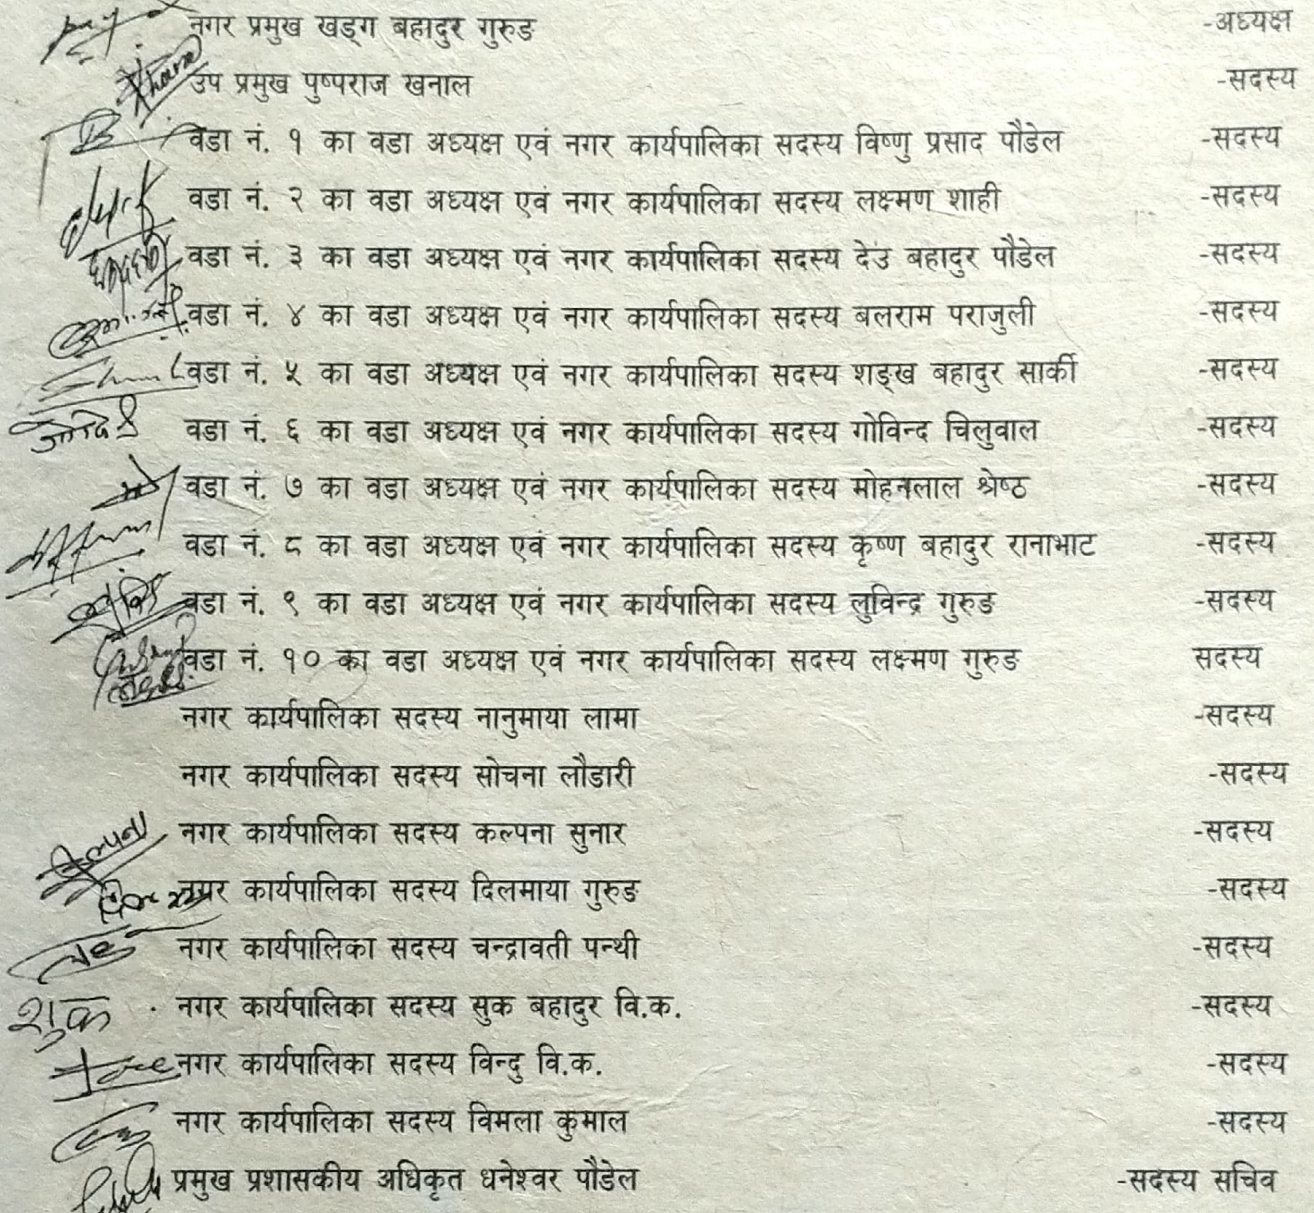 नगर प्रमुख खड्ग बहादुर गुरुङ -अध्यक्ष
उप प्रमुख पुष्पराज खनाल -सदस्य
वडा नं. १ का वडा अध्यक्ष एवं नगर कार्यपालिका सदस्य विष्णु प्रसाद पौडेल -सदस्य
वडा नं. २ का वडा अध्यक्ष एवं नगर कार्यपालिका सदस्य लक्ष्मण शाही -सदस्य
वडा नं. ३ का वडा अध्यक्ष एवं नगर कार्यपालिका सदस्य देउ बहादुर पौडेल -सदस्य
वडा नं. ४ का वडा अध्यक्ष एवं नगर कार्यपालिका सदस्य बलराम पराजुली -सदस्य
वडा नं. ५ का वडा अध्यक्ष एवं नगर कार्यपालिका सदस्य शङ्ख बहादुर सार्की -सदस्य
वडा नं. ६ का वडा अध्यक्ष एवं नगर कार्यपालिका सदस्य गोविन्द चिलुवाल -सदस्य
वडा नं. ७ का वडा अध्यक्ष एवं नगर कार्यपालिका सदस्य मोहनलाल श्रेष्ठ -सदस्य
वडा नं. ८ का वडा अध्यक्ष एवं नगर कार्यपालिका सदस्य कृष्ण बहादुर रानाभाट -सदस्य
वडा नं. ९ का वडा अध्यक्ष एवं नगर कार्यपालिका सदस्य लुविन्द्र गुरुङ -सदस्य
वडा नं. १० का वडा अध्यक्ष एवं नगर कार्यपालिका सदस्य लक्ष्मण गुरुङ सदस्य
नगर कार्यपालिका सदस्य नानुमाया लामा -सदस्य
नगर कार्यपालिका सदस्य सोचना लौडारी -सदस्य
कल्पना नगर कार्यपालिका सदस्य कल्पना सुनार -सदस्य
नगर कार्यपालिका सदस्य दिलमाया गुरुङ -सदस्य
नगर कार्यपालिका सदस्य चन्द्रावती पन्थी -सदस्य
शुक नगर कार्यपालिका सदस्य सुक बहादुर वि.क. -सदस्य
नगर कार्यपालिका सदस्य विन्दु वि.क. -सदस्य
नगर कार्यपालिका सदस्य विमला कुमाल -सदस्य
प्रमुख प्रशासकीय अधिकृत धनेश्वर पौडेल -सदस्य सचिव